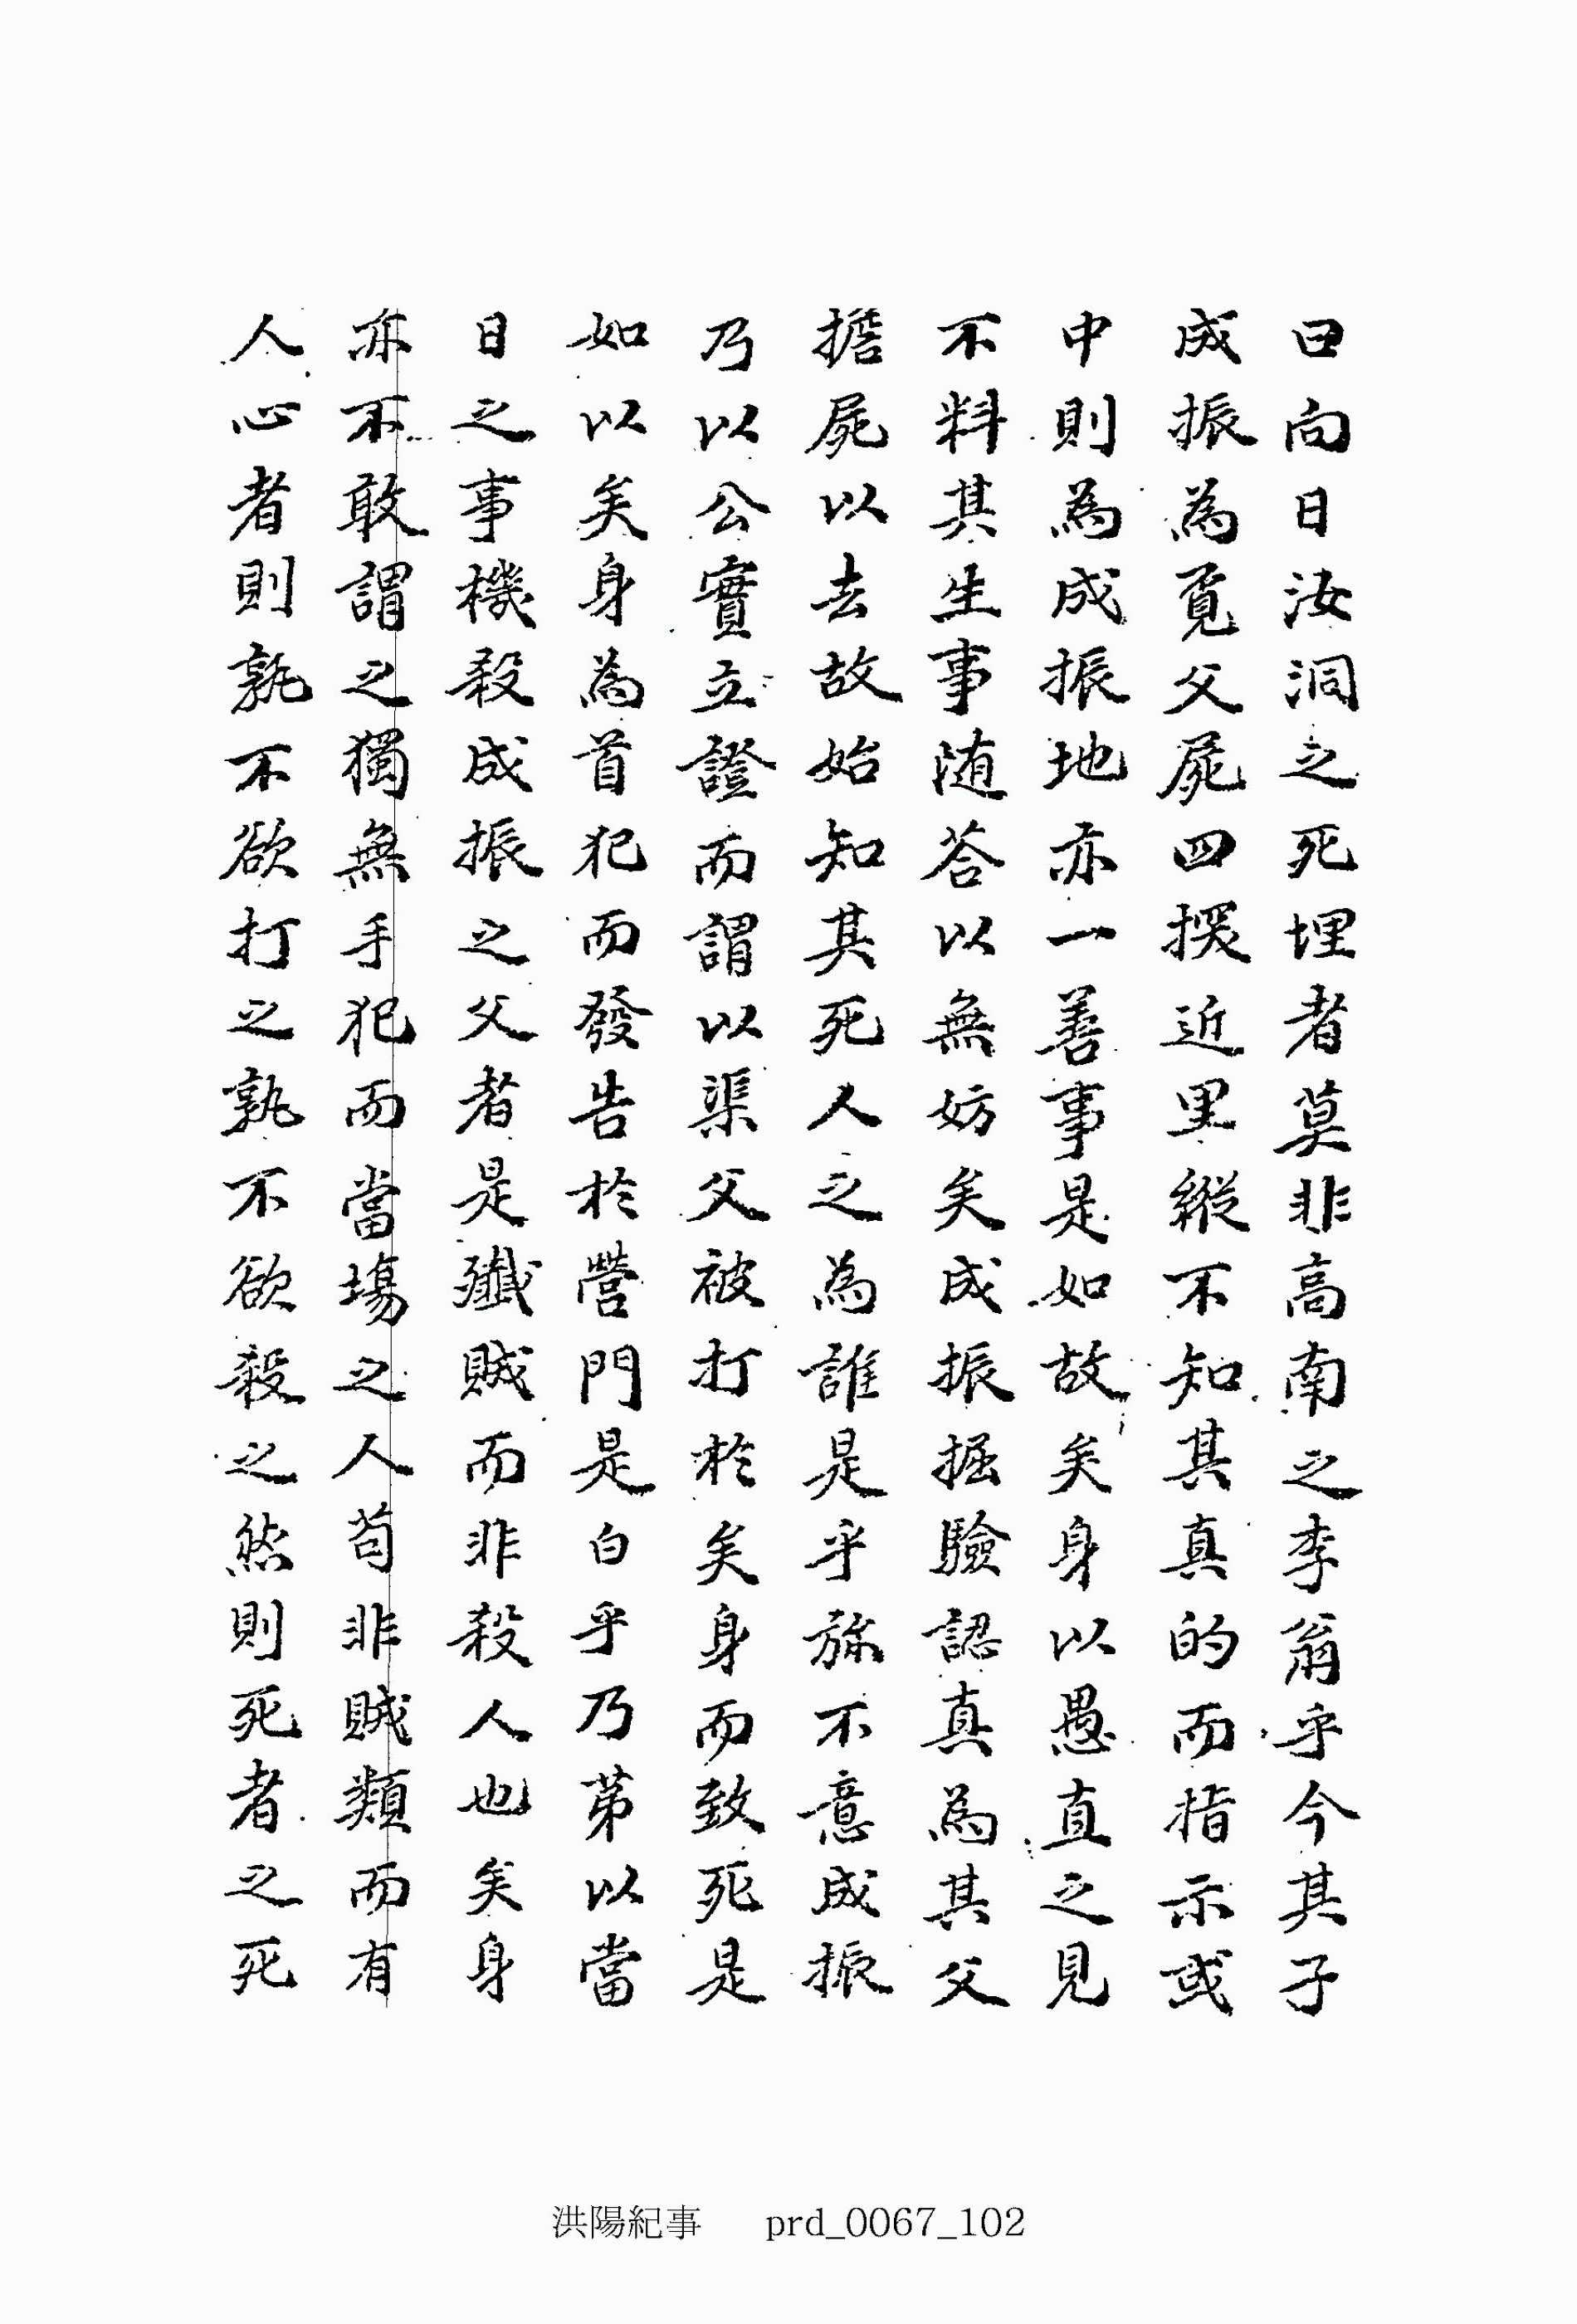 曰向日汝洞之死埋者莫非高南之李翁乎今其子
成振為覓父屍四探近里縱不知其真的而指示或
中則為成振地亦一善事是如故矣身以愚直之見
不料其生事随荅以無妨矣成振掘驗認真為其父
擔屍以去故始知其死人之為誰是乎旀不意成振
乃以公實立證而謂以渠父被打於矣身而致死是
如以矣身為首犯而發告於營門是白乎乃苐以當
日之事機殺成振之父者是殲賊而非殺人也矣身
亦不敢謂之獨無手犯而當塲之人苟非賊類而有
人心者則孰不欲打之孰不欲殺之然則死者之死
洪陽紀事 prd_0067_102